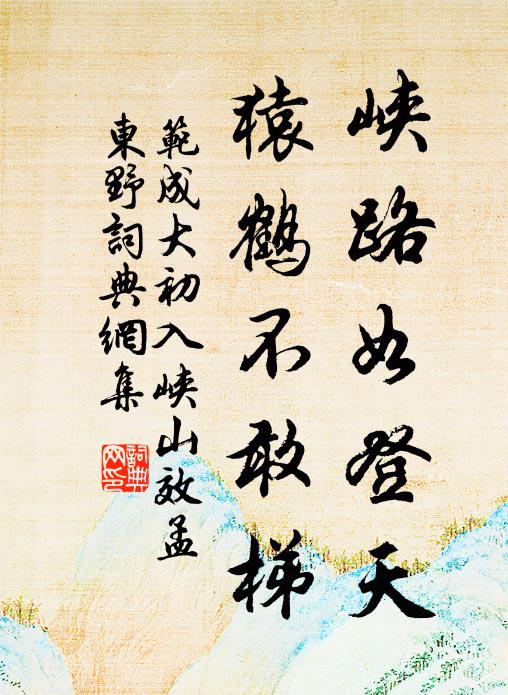 峽路如登天
猿鶴不敢梯
範成大初入峽山效孟
東野詞典網集
詞典
网印